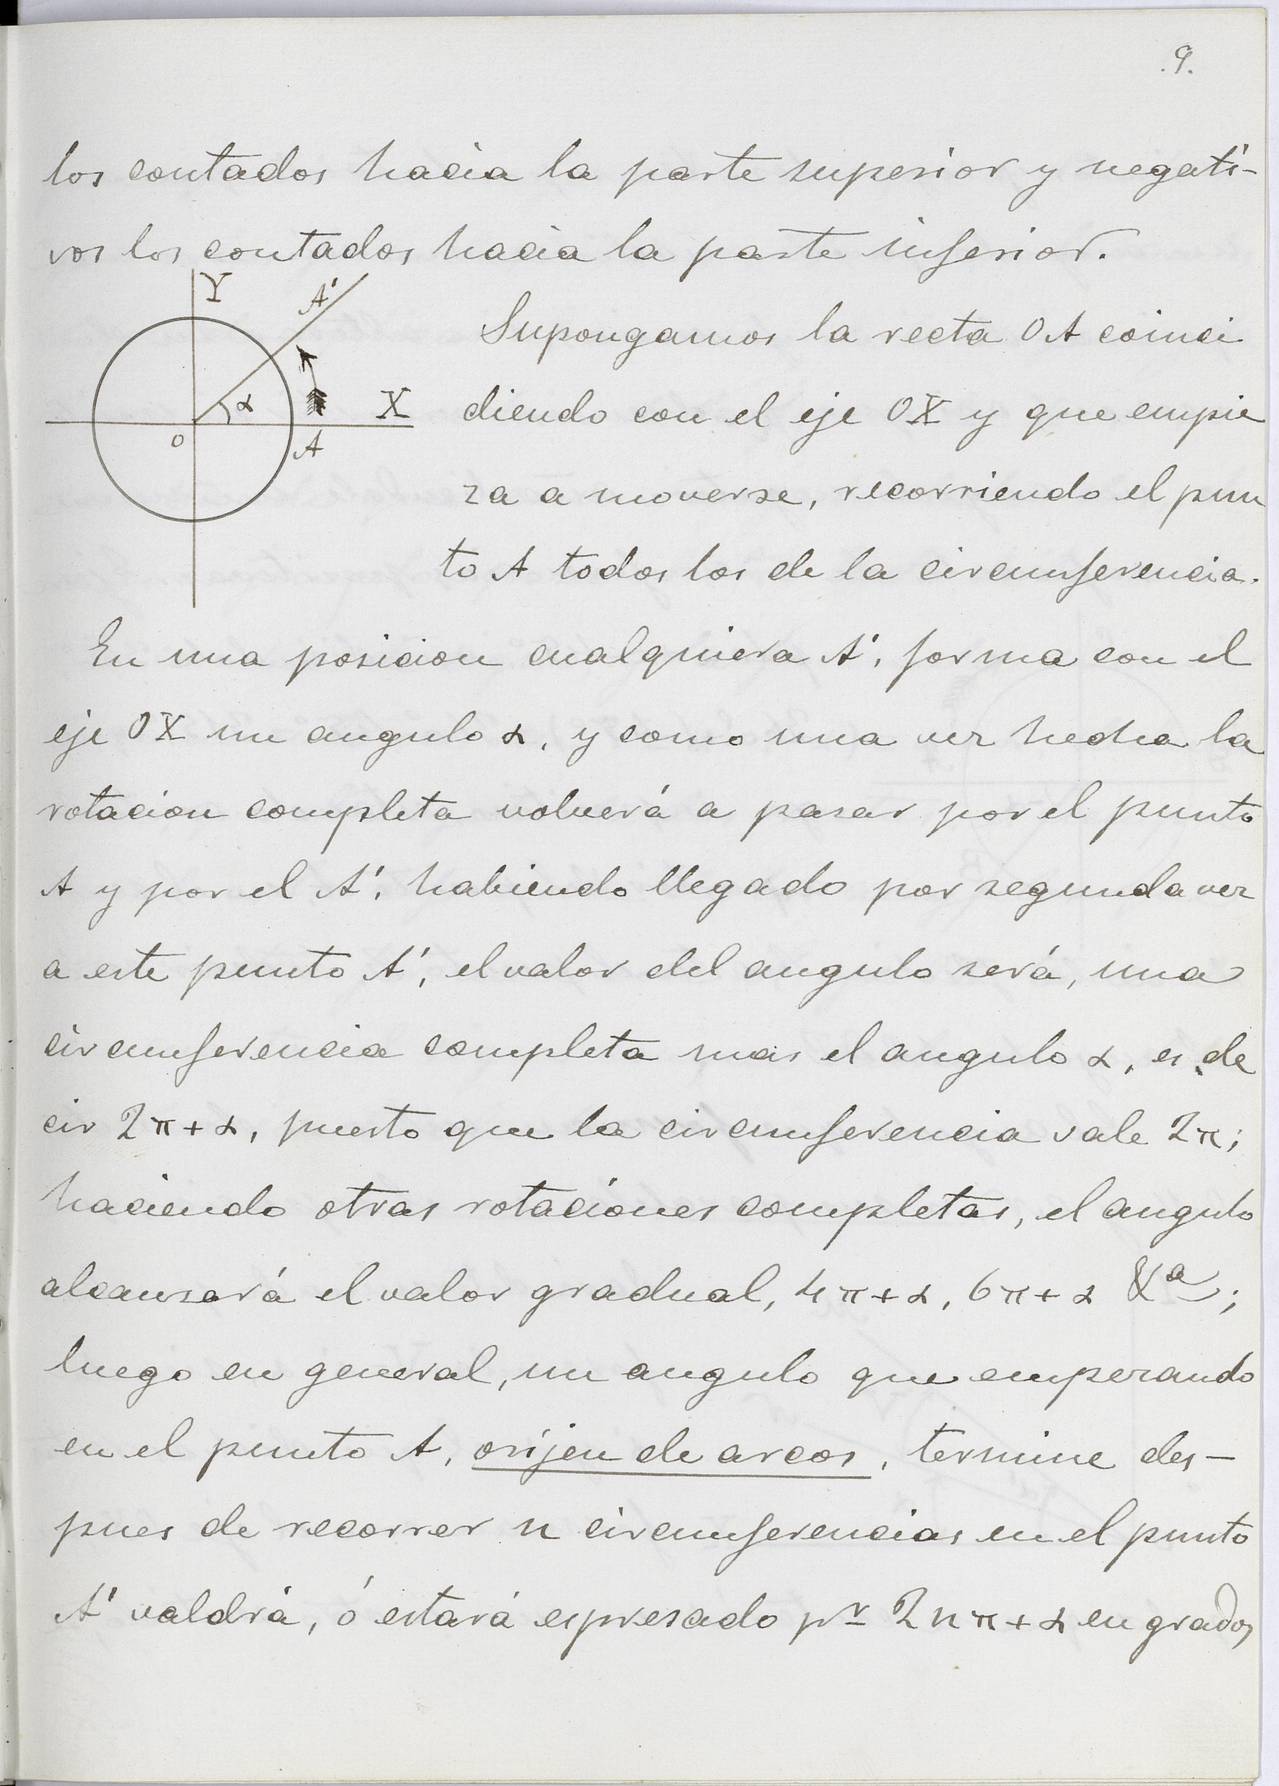 .9.
los contados hacia la parte superior y negati-
vos los contados hacia la parte inferior.
Y
A'
α
X
O
A
Supongamos la recta OA coinci
diendo con el eje OX y que empie
za a moverse, recorriendo el pun
to A todos los de la circunferencia.
En una posicion cualquiera A', forma con el
eje OX un angulo α, y como una vez hecha la
rotacion completa volverá a pasar por el punto
A y por el A', habiendo llegado por segunda vez
a este punto A', el valor del angulo será, una
circunferencia completa mas el angulo α, es de
cir 2π+α, puesto que la circunferencia vale 2π;
haciendo otras rotaciones completas, el angulo
alcansará el valor gradual, 4π+α, 6π+α &a;
luego en general, un angulo que empezando
en el punto A, orijen de arcos, termine des-
pues de recorrer n circunferencias en el punto
A' valdrá, ó estará espresado pr 2nπ+α en grados